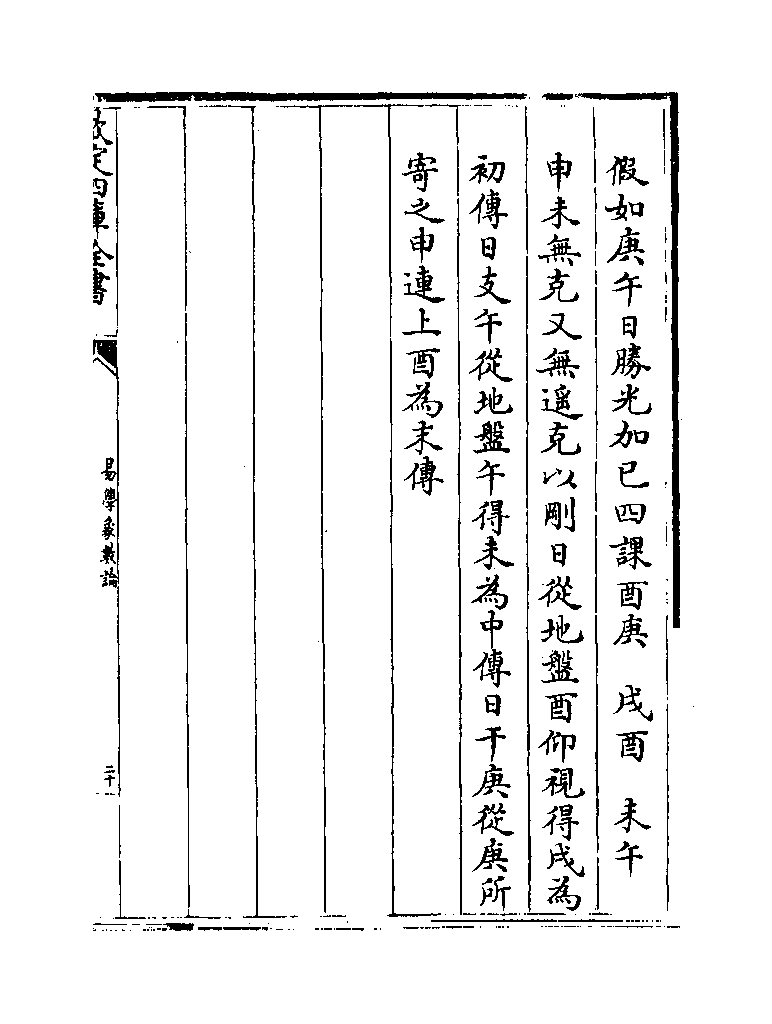 假如庚午日勝光加巳四課酉庚　戌酉　未午
申未無克又無遥克以剛日從地盤酉仰視得戌為
初傳日支午從地盤午得未為中傳日干庚從庚所
寄之申連上酉為末傳
欽定四庫全書
易學象數論
二十